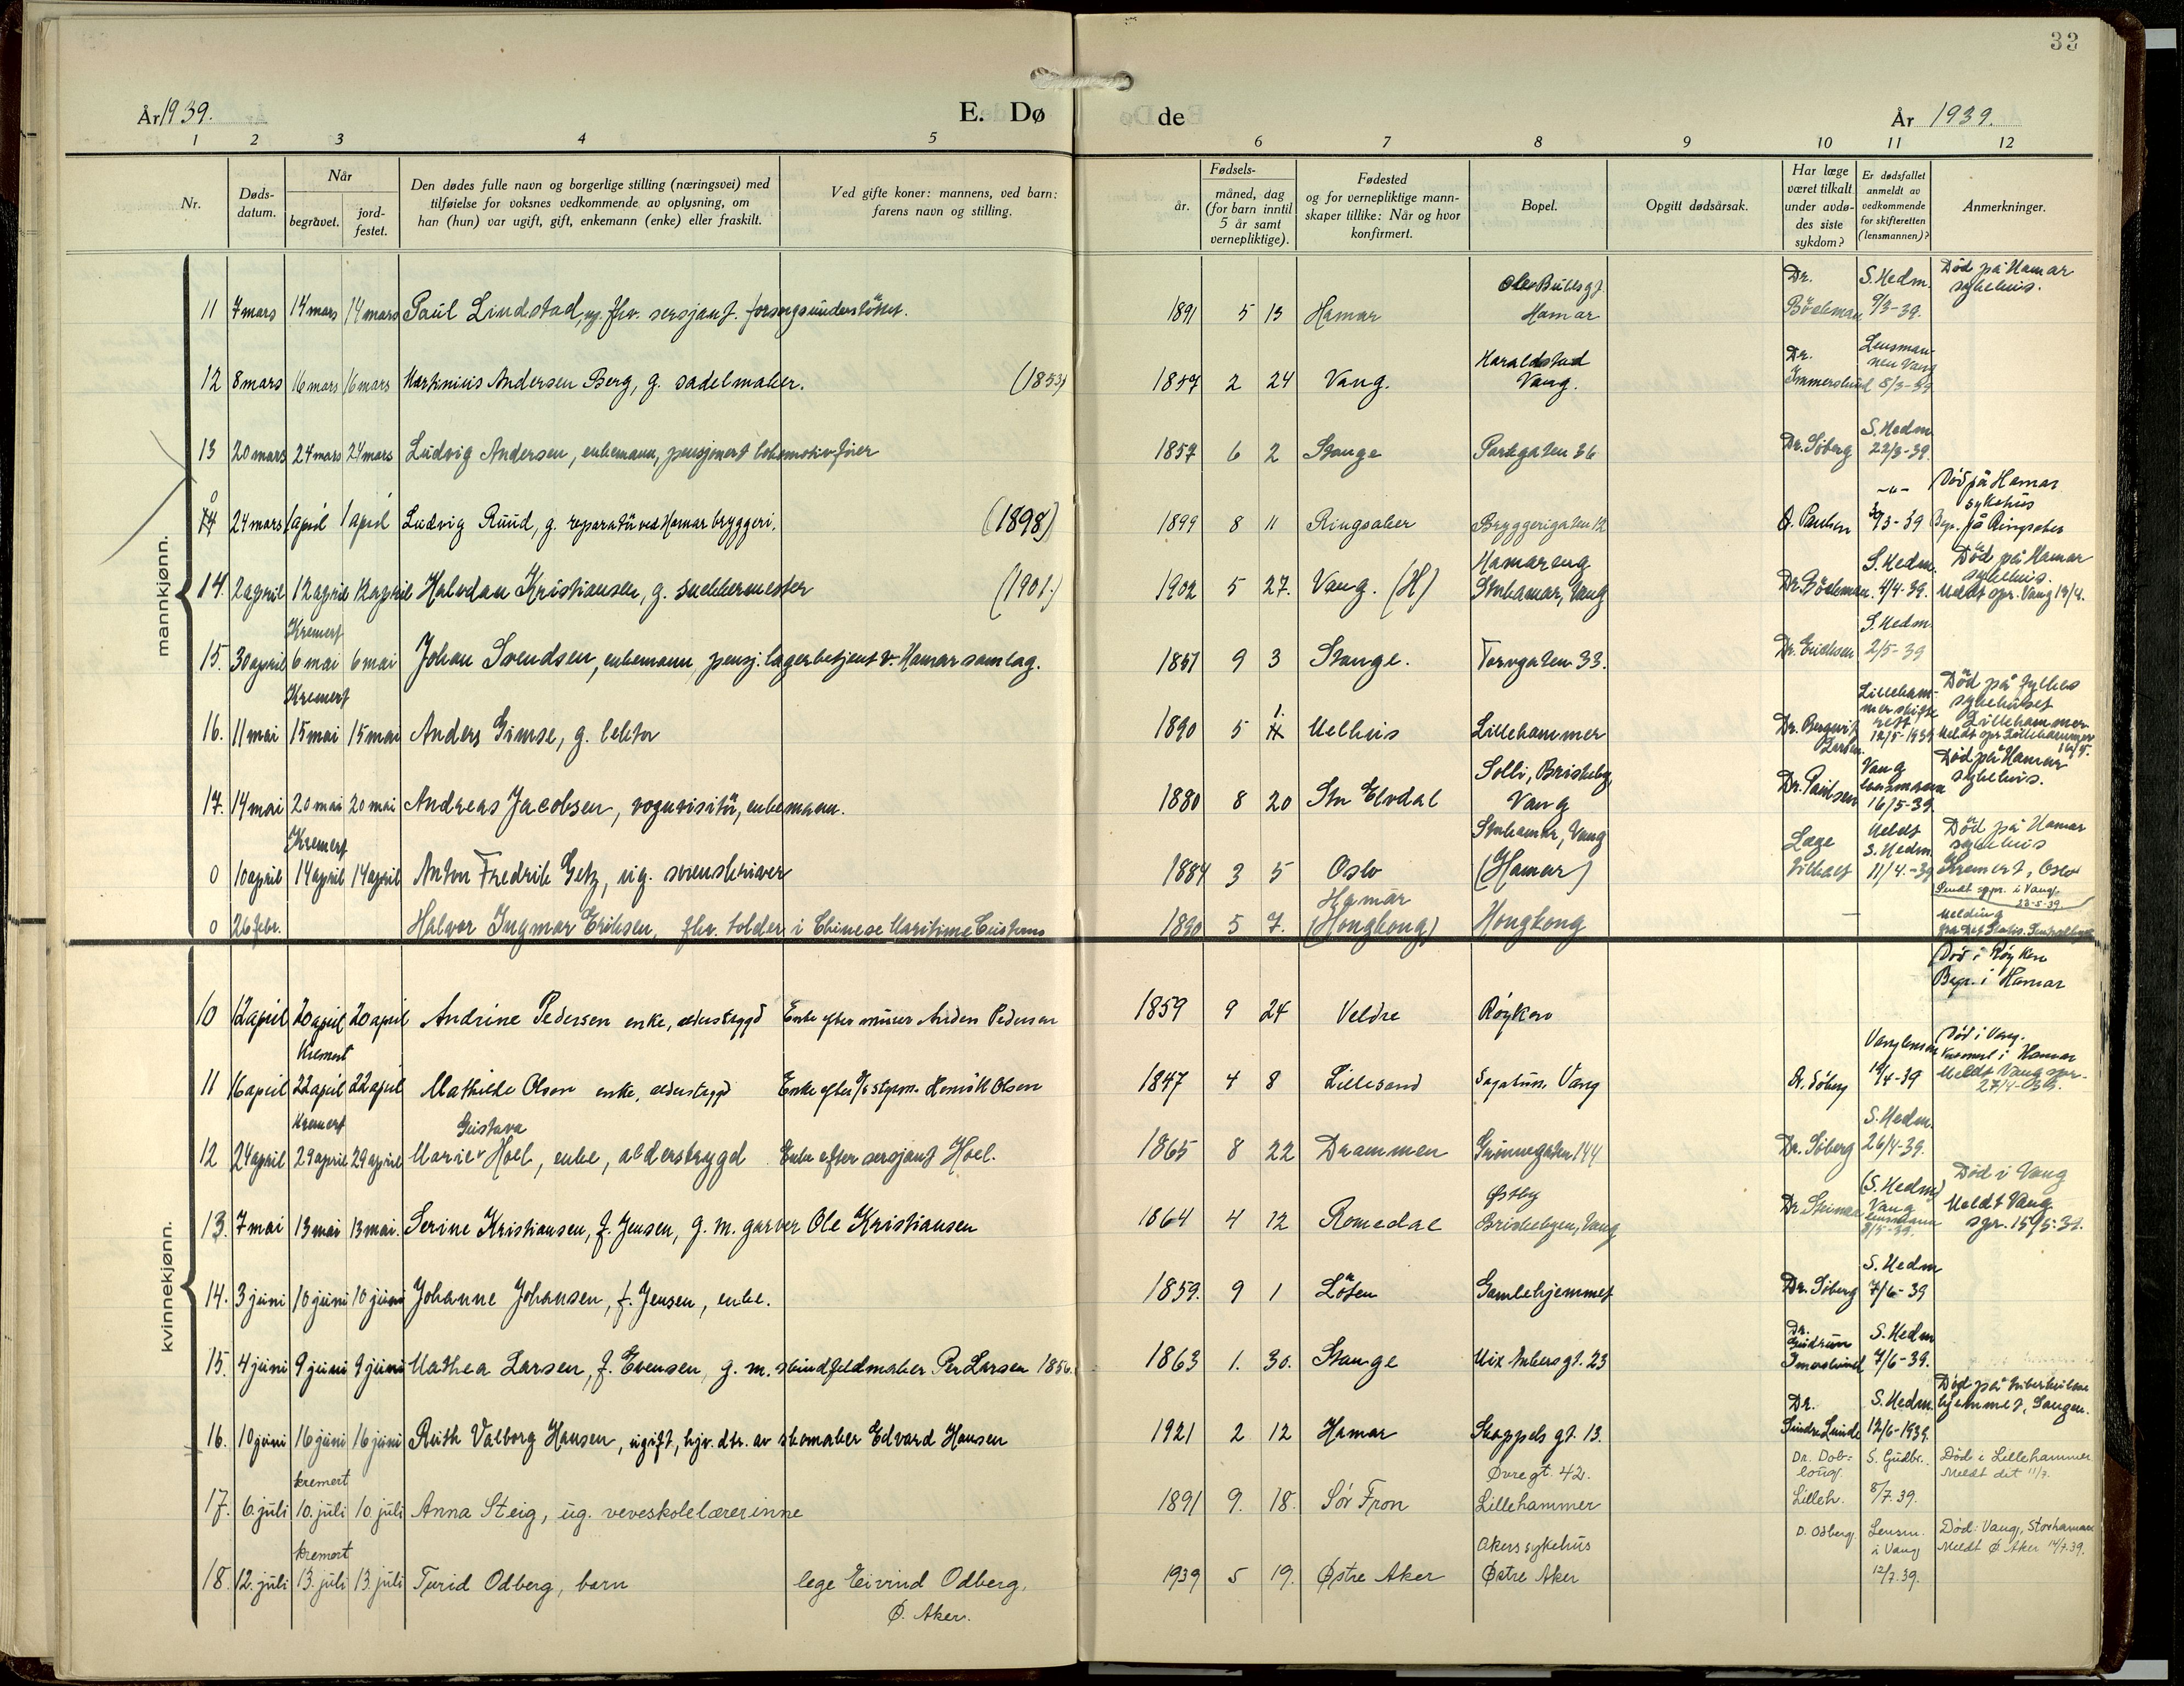 33
År 1939. E. Dø de År 1939.
1 2 3 4 5 6 7 8 9 10 11 12
Nr.
Døds-
datum.
Når
begravet.
jord-
festet.
Den dødes fulle navn og borgerlige stilling (næringsvei) med
tilføielse for voksnes vedkommende av oplysning, om
han (hun) var ugift, gift, enkemann (enke) eller fraskilt.
Ved gifte koner: mannens, ved barn:
farens navn og stilling.
Fødsels-
år.
måned, dag
(for barn inntil
5 år samt
vernepliktige).
Fødested
og for vernepliktige mann-
skaper tillike: Når og hvor
konfirmert.
Bopel.
Opgitt dødsårsak.
Har læge
været tilkalt
under avdø-
des siste
sykdom?
Er dødsfallet
anmeldt av
vedkommende
for skifteretten
(lensmannen)?
Anmerkninger.
mannkjønn.
Ole Bullsgt Dr. S. Hedm. Död på Hamar
sykehus.
11 7 mars 14 mars 14 mars Paul Lindstad, ug. fhv. sersjant. forsorgsunderstöttet. 1891 5 13 Hamar Hamar Böckman 9/3-39.
Haraldstad Dr. Lensman-
nen Vang
12 8 mars 16 mars 16 mars Martinius Andersen Berg, g. sadelmaker. (1853) 1857 2 24 Vang. Vang. Immerslund 8/3-39
S. Hedm
13 20 mars 24 mars 24 mars Ludvig Andersen, enkemann, pensjonert lokomotivfører 1857 6 2 Stange Parkgaten 36 Dr. Søberg 22/3-39.
0 -"- Død på Hamar
sykehus
14 24 mars 1 april 1 april Ludvig Ruud, g. reparatür ved Hamar bryggeri. (1898) 1899 8 11 Ringsaker Bryggerigaten 12 D. Paulsen 30/3-39 Begr. på Ringsaker
Hamareng S. Hedm. Död på Hamar
sykehus.
14. 2 april 12 april 12 april Halvdan Kristiansen, g. snekkermester (1901.) 1902 5 27. Vang. (H) Storhamar, Vang Dr. Böckman. 4/4-39. Meldt spr. Vang 19/4.
Kremert S. Hedm.
15. 30 april 6 mai 6 mai Johan Svendsen, enkemann, pensj. lagerbetjent v. Hamar samlag. 1857 9 3 Stange. Torvgaten 33. Dr. Erichsen 2/5-39
Kremert Lilleham-
mer skifte
rett Död på fylkes
sykehuset
Lillehammer
16. 11 mai 15 mai 15 mai Anders Gimse, g. lektor 1890 5 1. 11 Melhus Lillehammer Dr. 12/5-1939 Meldt spr. Lillehammer
16/5.
Solli, Briskeby Vang
lensmann Död på Hamar
sykehus.
17. 14 mai 20 mai 20 mai Andreas Jacobsen, vognvisitür, enkemann. 1880 8 20 Str Elvdal Vang Dr. Paulsen 16/5-39.
Kremert Storhamar, Vang Læge Meldt
S. Hedm. Död på Hamar
sykehus
0 10 april 14 april 14 april Anton Fredrik Getz, ug. sorenskriver 1884 3 5 Oslo (Hamar) tilkalt 11/4.-39 Kremert, Oslo
Sendt sgpr. i Vang.
23-5-39
Hamar
0 26 febr. Halvor Ingmar Eriksen, fhv. tolder i Chinese Maritime Customs 1890 5 7. (Hongkong) Hongkong - Melding
fra Det Statis. Sentralbyrå
kvinnekjønn.
Død i Røyken
Begr. i Hamar
10 12 april 20 april 20 april Andrine Pedersen enke, alderstrygd Enke efter murer Anders Pedersen 1859 9 24 Veldre Røyken
Kremert Vang lensm Død i Vang.
Kremert i Hamar
11 16 april 22 april 22 april Mathilde Olsen enke, alderstrygd Enke efter Henrik Olsen 1847 4 8 Lillesand Sagatun. Vang Dr. Søberg 19/4-39 Meldt Vang spr.
27/4-39.
Kremert Gustava S. Hedm.
12 24 april 29 april 29 april Marie Hoel, enke, alderstrygd Enke efter sersjant Hoel. 1865 8 22 Drammen Grønnegaten 144 Dr. Søberg 26/4-39.
Østby (S. Hedm) Død i Vang
13. 7 mai 13 mai 13 mai. Serine Kristiansen, f. Jensen, g. m. garver Ole Kristiansen 1864 4 12 Romedal Briskebyen, Vang Dr. Vang
lensmann
8/5-39. Meldt Vang
sgr. 15/5-39.
S. Hedm
14. 3 juni 10 juni 10 juni Johanne Johansen, f. Jensen, enke. 1859. 9 1 Löten Gamlehjemmet Dr. Søberg 7/6-39
Dr.
Gudrun S. Hedm
15. 4 juni 9 juni 9 juni Mathea Larsen, f. Evensen, g. m. skindfeldmaker Per Larsen 1856. 1863 1. 30. Stange Mix Ankers gt. 23 Imerslund 7/6-39.
Dr. S. Hedm. Död på tuberkulose
hjemmet, Sangen.
16. 10 juni 16 juni 16 juni Ruth Valborg Hansen, ugift, hjv. dtr. av skomaker Edvard Hansen 1921 2 12 Hamar Skappels gt. 13. Sindre Lunde 12/6-1939.
kremert Øvregt. 42. Dr. Dob-
loug. S. Gudbr. Død i Lillehammer
Meldt det 11/7.
17. 6. juli 10. juli 10. juli Anna Steig, ug. veveskolelærerinne 1891 9. 18. Sør Fron Lillehammer Lilleh. 8/7.39.
kremert Akers sykehus D. Odberg Lensm.
i Vang Død: Vang, Storhamar
Meldt Ø. Aker 14/7.39.
18. 12. juli 13. juli 13. juli Turid Odberg, barn lege Eivind Odberg, 1939 5 19. Østre Aker Østre Aker 12/7.39.
Ø. Aker.